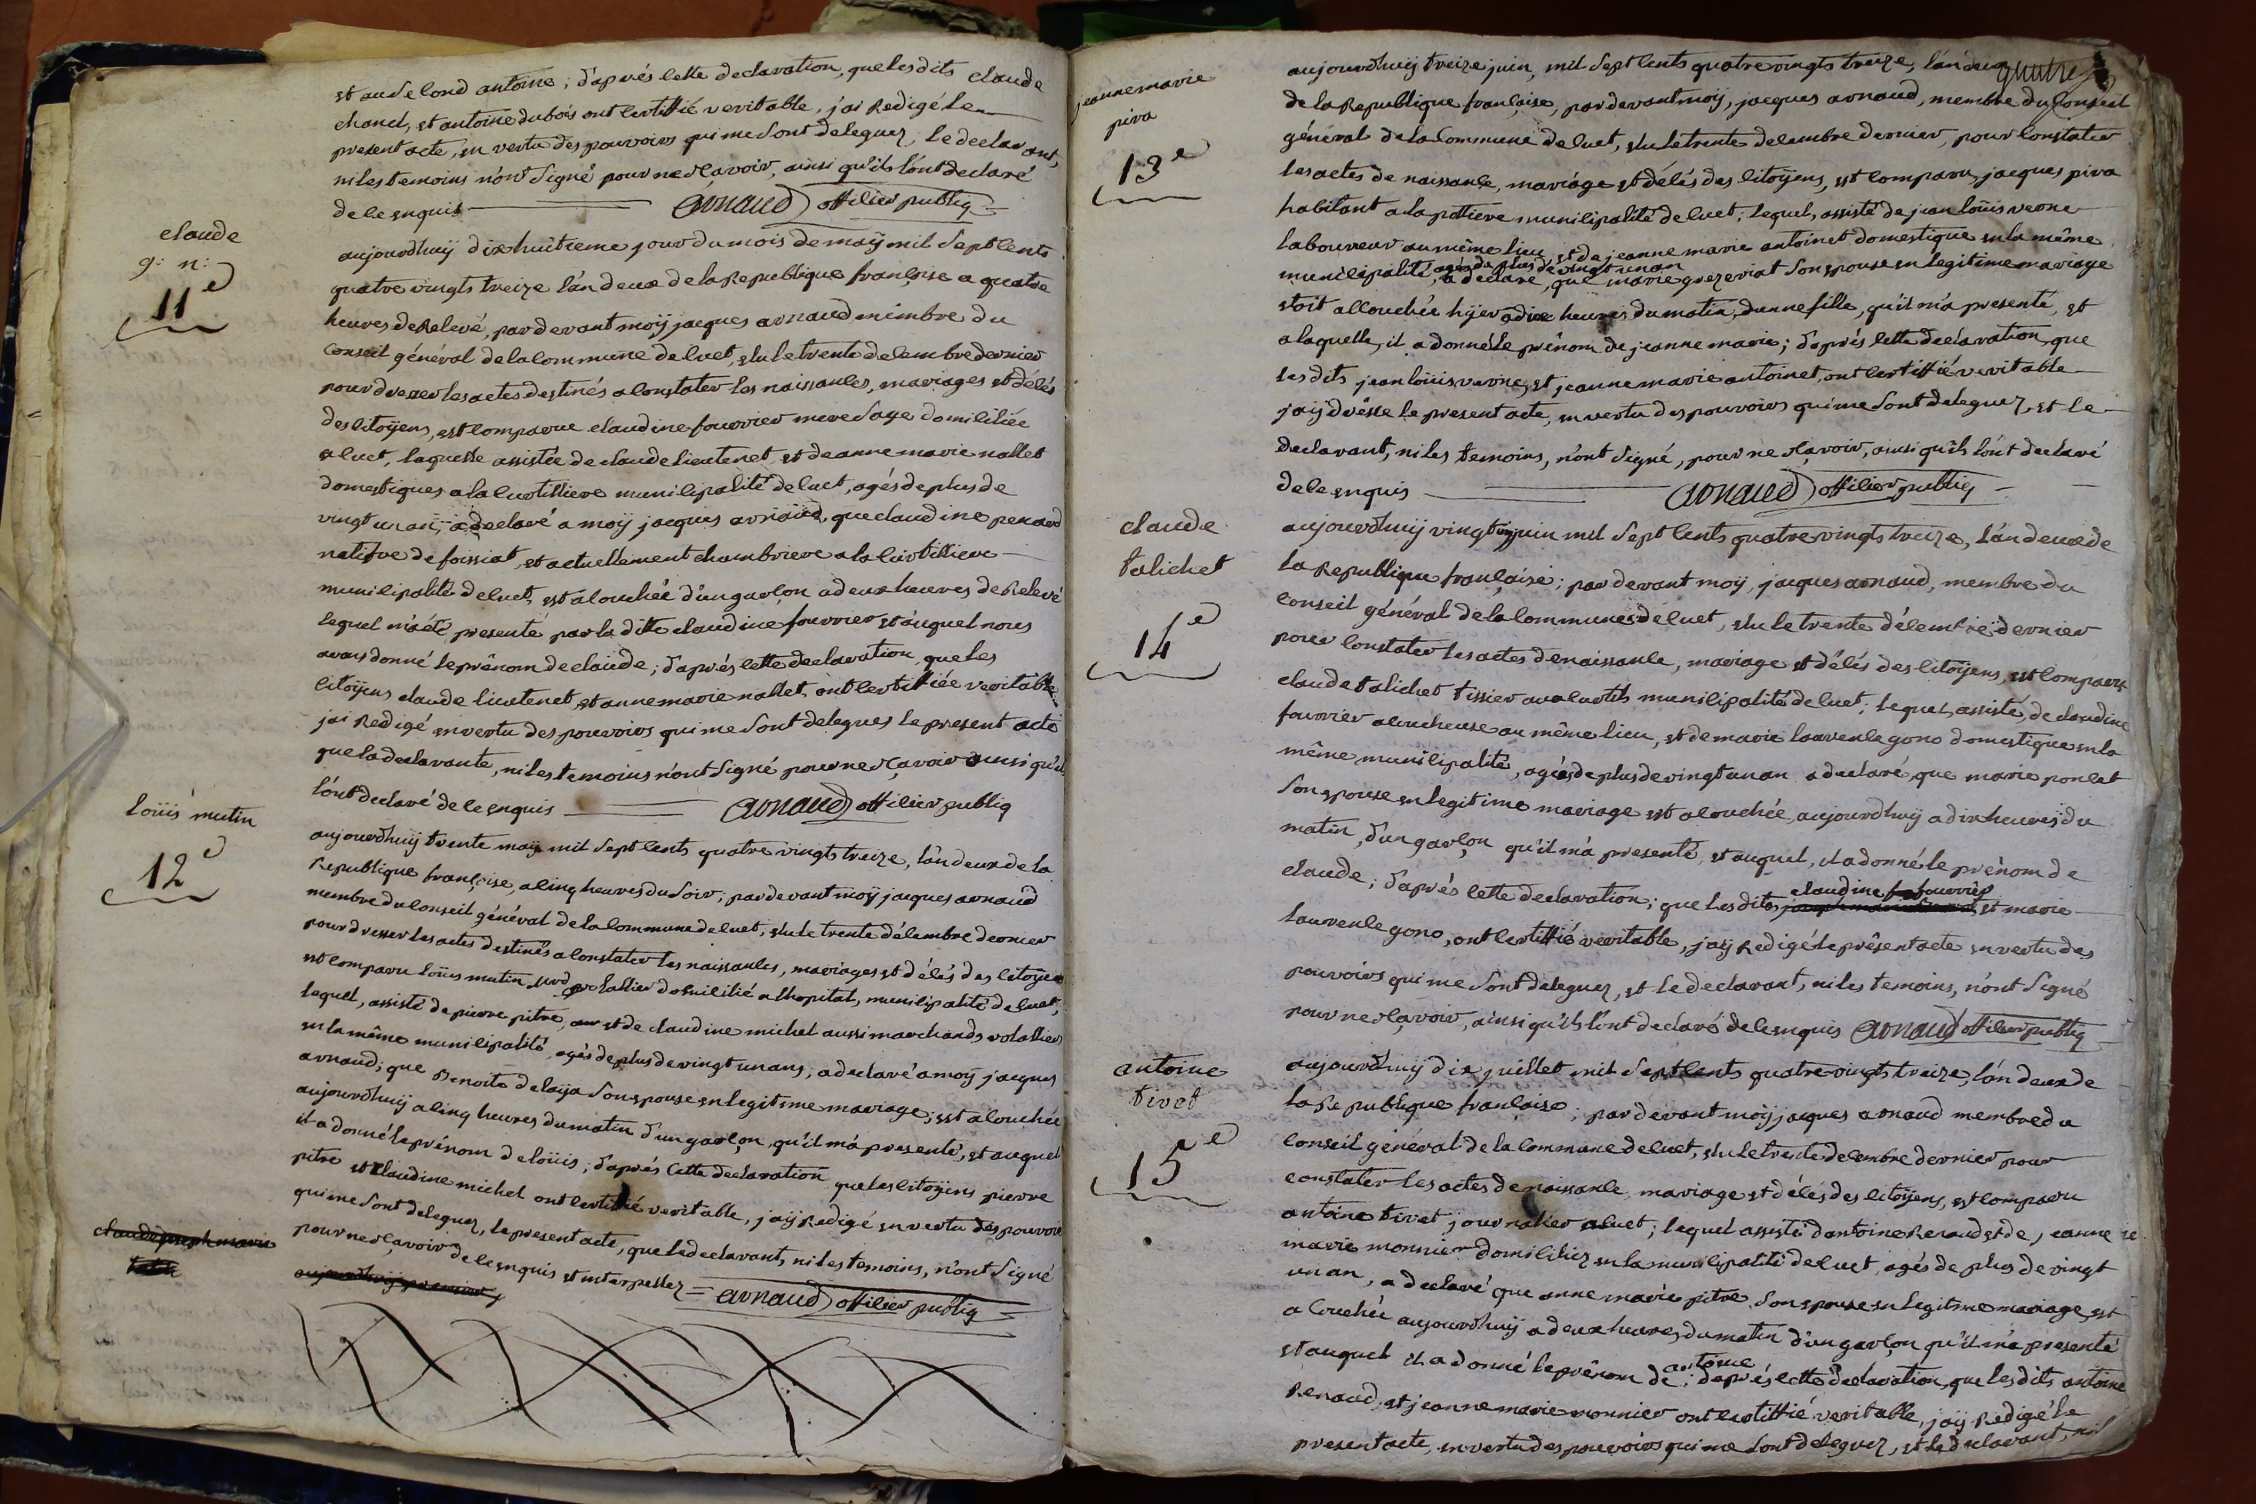 et au second antoine ; d'aprés cette declaration, que les dits claude
chanel, et antoine dubois ont certiffié veritable, j'ai Redigé le
present acte, en vertu des pouvoirs qui me sont deleguez, le declarant,
ni les temoins n'ont signé pour ne sçavoir, ainsi qu'ils l'ont declaré
de ce enquis arnaud officier publiq
claude
g: n:
11e
aujourdhuij dixhuitieme jour du mois de maij mil sept cents
quatre vingts treize l'an deux de la Republique françoise a quatre
heures de Relevé, par devant moij jacques arnaud membre du
Conseil général de la Commune de cuet, elu le trente decembre dernier
pour dresser les actes destinés a Constater les naissances, mariages et décés
des citoijens, est Comparue claudine fourrier mere sage domiciliée
a cuet, laquelle assistée de claude lieutenet, et de anne marie nallet
domestiques a la curtilliere municipalité de cuet, agés de plus de
vingt un an, a declaré a moij jacques arnaud, que claudine penard
native de foissiat, et actuellement chambriere a la Curtilliere
municipalité de cuet, est acouchée d'un garçon a deux heures de Relevé
lequel m'a été presenté par la ditte claudine fourrier et auquel nous
avons donné le prênom de claude ; d'aprés cette declaration, que les
citoijens claude lieutenet, et anne marie nallet, ont certiffiée veritable
j'ai Redigé en vertu des pouvoirs qui me sont delegues le present acte
que la declarante, ni les temoins n'ont signé pour ne sçavoir ainsi qu'ils
l'ont declaré de ce enquis arnaud officier publiq
loüis mutin
12e
aujourdhuij trente maij mil sept cents quatre vingts treize, l'an deux de la
Republique françoise, a cinq heures du soir ; par devant moij jacques arnaud
membre du Conseil général de la Commune de cuet, elu le trente décembre dernier
pour dresser les actes destinés a Constater les naissances, mariages et décés des citoijens
est comparu loüis mutin domicilié a lhopital, municipalité de cuet,
lequel, assisté de pierre pitre, et de claudine michel aussi marchands volallier
en la même municipalité, agés de plus de vingt un ans, a declaré a moij jacques
arnaud ; que Benoite delaija son epouse en legitime mariage, est acouchée
aujourdhuij a cinq heures du matin d'un garçon, qu'il m'a presenté, et auquel
il a donné le prénom de loüis ; d'aprés Cette declaration que les citoijens pierre
pitre et Claudine michel ont certiffié veritable, j'aij Redigé en vertu des pouvoirs
qui me sont deleguez, le present acte, que le declarant, ni les temoins, n'ont signé
pour ne sçavoir de ce enquis et interpellez arnaud officier publiq
claude joseph marie
aujourdhuij premier
jeanne marie
piva
13e
aujourdhuij treize juin, mil sept cents quatre vingts treize, l'an deux
de la Republique françoise, par devant moij, jacques arnaud, membre du Conseil
général de la Commune de cuet, elu le trente decembre dernier, pour Constater
les actes de naissance, mariage et décés des citoijens, est Comparu, jacques piva
habitant a la potiere municipalité de cuet ; lequel, assisté de jean loüis verne
laboureur au même lieu, et de jeanne marie antoinet domestique en la même
municipalité, agés de plus de vingt un an
a declaré, que marie grezeriat son epouse en legitime mariage
etoit accouchée hyer a dix heures du matin, d'une fille, qu'il m'a presenté, et
a laquelle, il a donné le prênom de jeanne marie ; d'aprés cette declaration, que
les dits jean loüis verne, et jeanne marie antoinet, ont certiffié veritable
j'aij dresse le present acte, en vertu des pouvoirs qui me sont deleguez, et le
declarant, ni les temoins, n'ont signé, pour ne sçavoir, ainsi qu'ils l'ont declaré
de ce enquis arnaud officier publiq
claude
talichet
14e
aujourdhuij vingt juin mil sept cents quatre vingts treize, l'an deux de
la Republique françoise ; par devant moij, jacques arnaud, membre du
Conseil général de la Commune de cuet, elu le trente décembre dernier
pour Constater les actes de naissance, mariage et décés des citoijens, est comparu
claude talichet tissier aux curtils municipalité de cuet ; lequel, assisté, de claudine
fourrier acoucheuse au même lieu, et de marie laurence gono domestique en la
même municipalité, agées de plus de vingt un an a declaré, que marie poncet
son epouse en legitime mariage est acouchée, aujourdhuij a dix heures du
matin, d'un garçon qu'il m'a presenté, et auquel, il a donné le prênom de
claude ; d'aprés cette declaration ; que les dites claudine fourrier et marie
laurence gono, ont certiffié veritable, j'aij Redigé le prêsent acte en vertu des
pouvoirs qui me sont deleguez, et le declarant, ni les temoins, n'ont signé
pour ne sçavoir, ainsi qu'ils l'ont declaré de ce enquis arnaud officier publiq
antoine
tivet
15e
aujourdhuij dix juillet mil sept cents quatre vingts treize, l'an deux de
la Republique françoise ; par devant moij jacques arnaud membre du
Conseil général de la Commune de cuet, elu le trente decembre dernier pour
constater les actes de naissance, mariage et décés des citoijens, est comparu
antoine tivet journalier a cuet ; lequel assisté d'antoine Renaud et de jeanne
marie monnier domiciliez en la municipalité de cuet, agés de plus de vingt
un an, a declaré que anne marie pitre son epouse en legitime mariage, est
a Couchée aujourdhuij a deux heures du matin d'un garçon qu'il m'a presenté
et auquel il a donné le prênom de antoine ; d'aprés cette declaration, que les dits antoine
Renaud, et jeanne marie monnier ont certiffié veritable, j'aij Redigé le
present acte, en vertu des pouvoirs qui me sont deleguez, et le declarant, ni